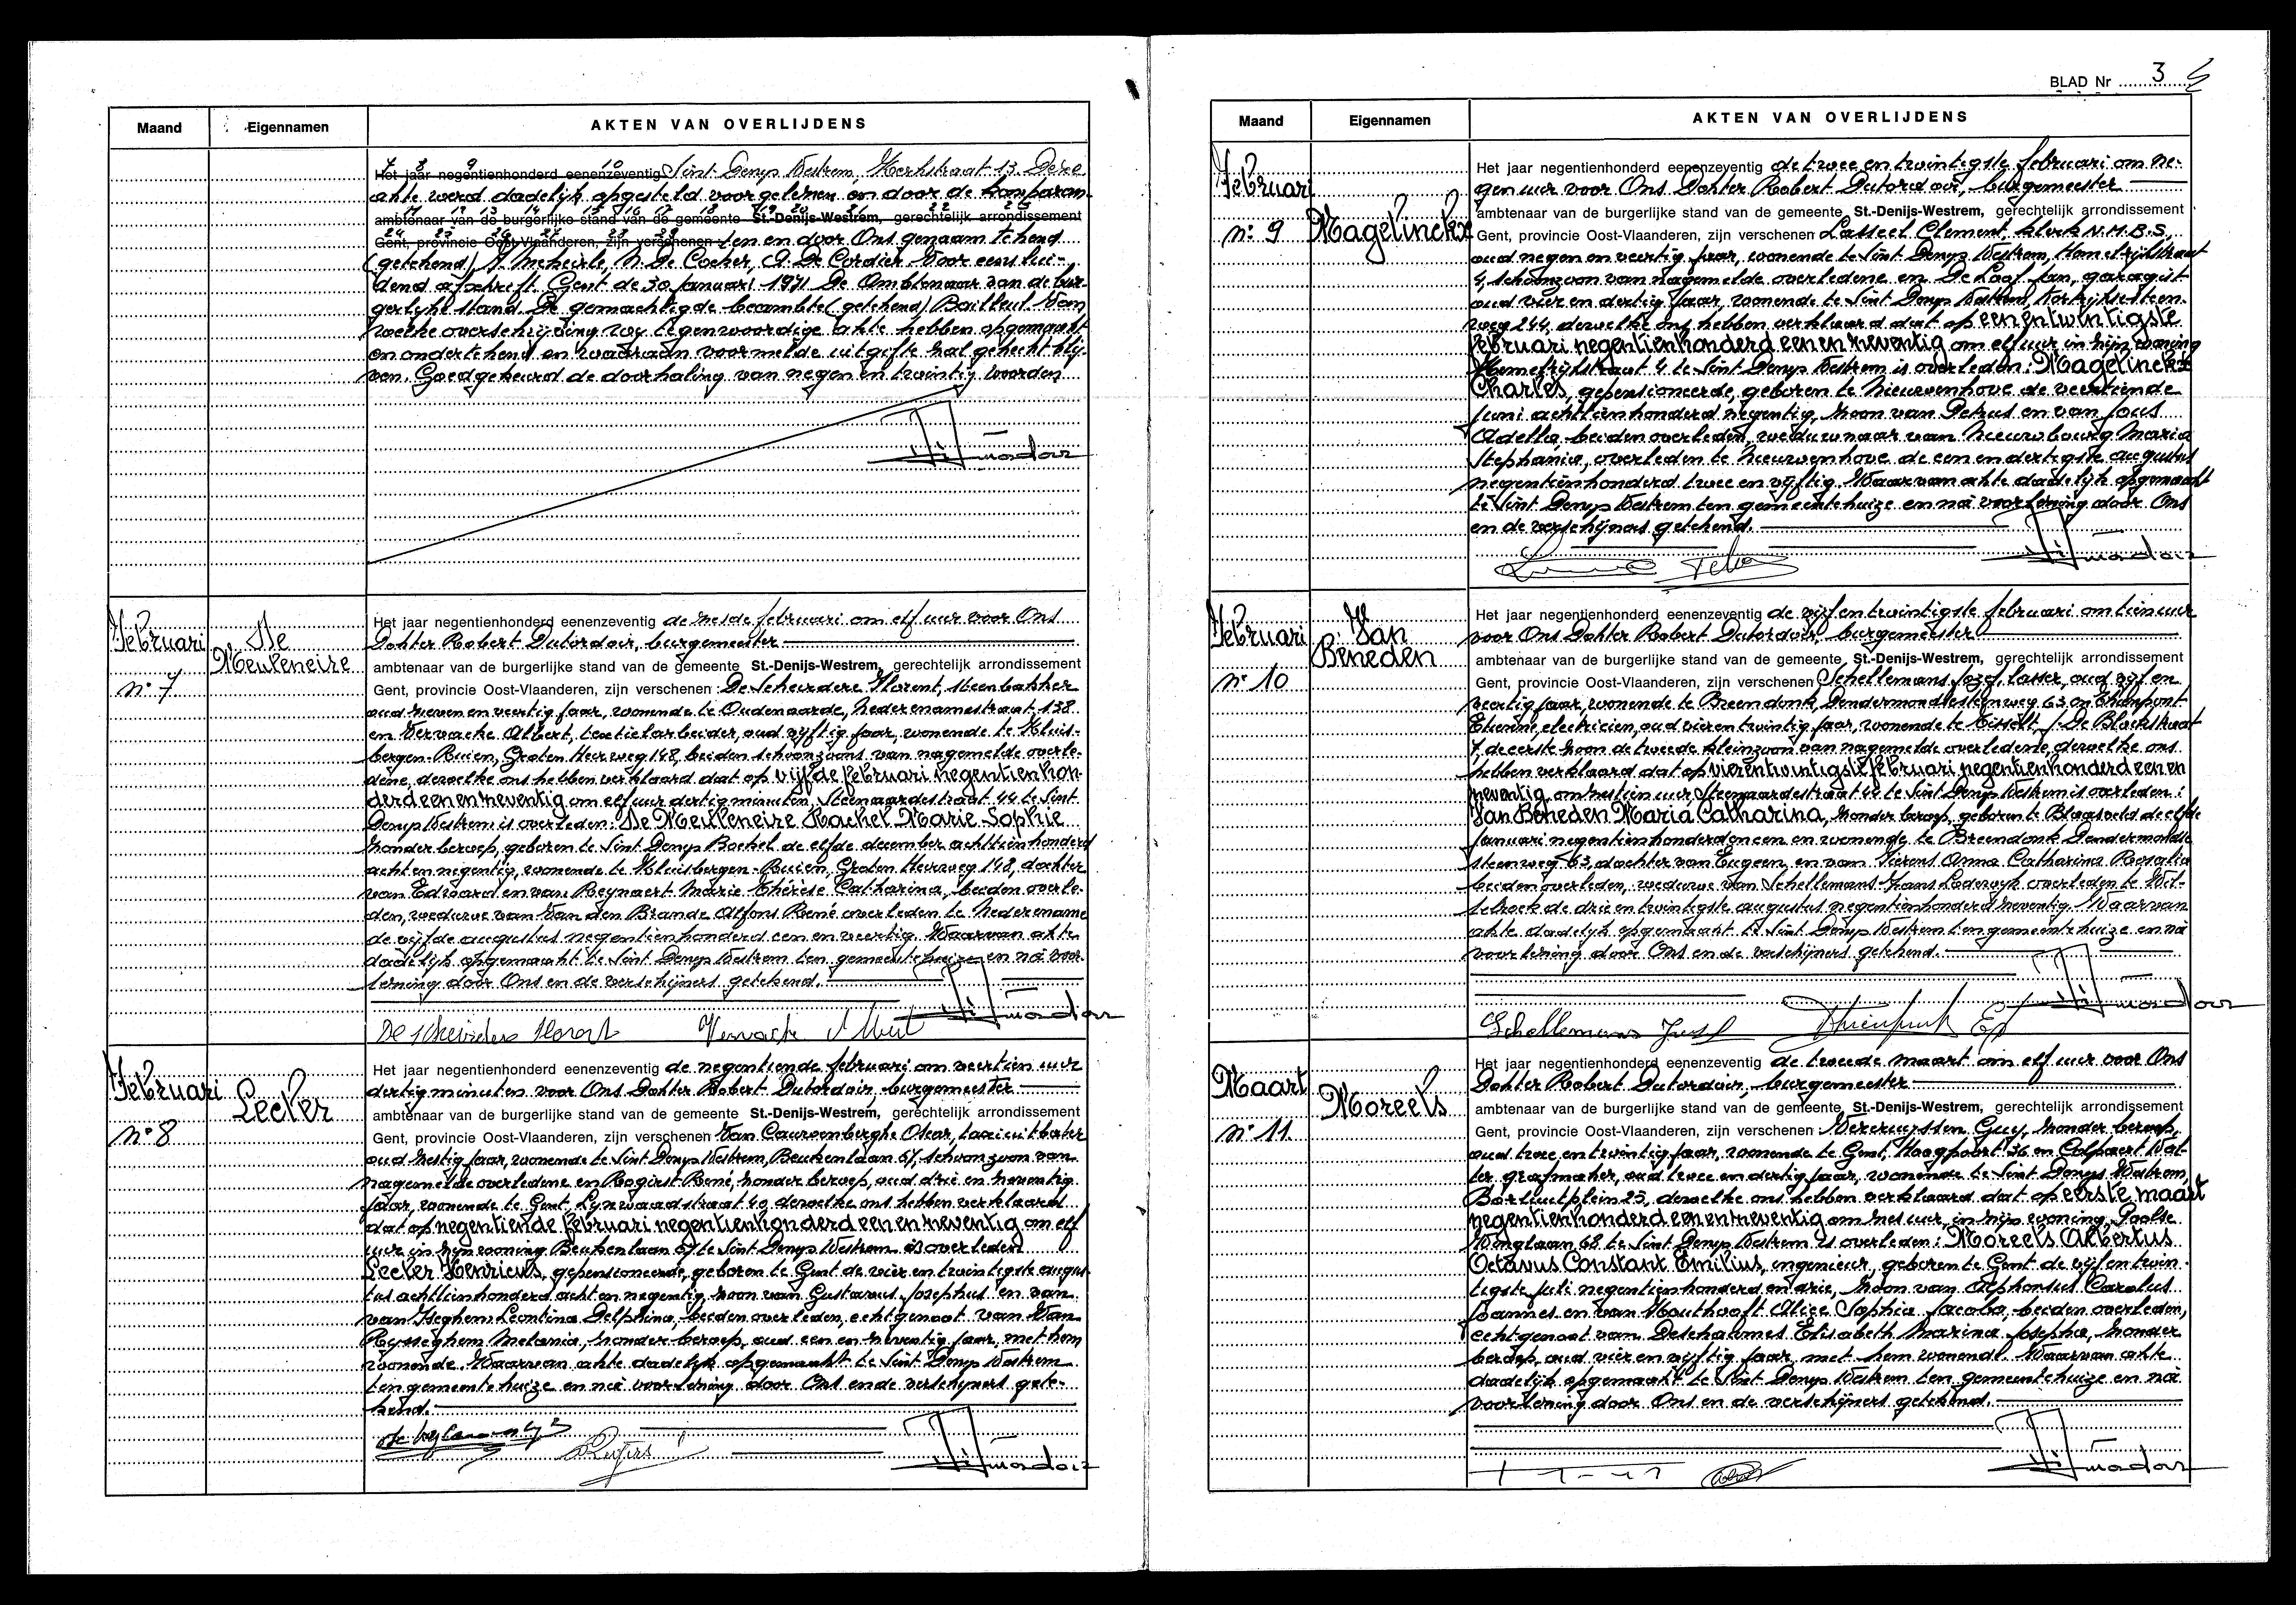 Maand Eigennamen AKTEN VAN OVERLIJDENS
7 8 9 10
Het jaar negentienhonderd eenenzeventig Sint Denys Westrem, Kerkstraat 13. Deze
akte werd dadelijk opgesteld voorgelezen en door de komparan-
ambtenaar van de burgerlijke stand van de gemeente St.-Denijs-Westrem, gerechtelijk arrondissement
Gent, provincie Oost-Vlaanderen, zijn verschenen ten en door Ons genaam tekend
(getekend) J. Mekeirle, N. De Cocker, A. De Cordier. Voor eenslui-
dend afschrift. Gent de 30 januari 1971 De Ambtenaar van de bur-
gerlijke stand De gemachtigde beambte (getekend) Bailleul. Van
welke overschrijving wij tegenwoordige akte hebben opgemaakt
en ondertekend en waaraan voormelde uitgifte zal gehecht blij-
ven. Goedgekeurd de doorhaling van negen en twintig woorden
Februari
n° 7
De Meuleneire
Het jaar negentienhonderd eenenzeventig de zesde februari om elf uur voor Ons
Dokter Robert Dutordoir, burgemeester
ambtenaar van de burgerlijke stand van de gemeente St.-Denijs-Westrem, gerechtelijk arrondissement
Gent, provincie Oost-Vlaanderen, zijn verschenen : De Scheirdere Florent, steenbakker
oud zeven en veertig jaar, wonende te Oudenaarde, Nederenamestraat 138
en Vervacke Albert, textielarbeider, oud vijftig jaar, wonende te Kluis-
bergen-Ruien, Groten Heerweg 148, beiden schoonzoons van nagemelde overle-
dene, dewelke ons hebben verklaard dat op vijfde februari negentienhon-
derd een en zeventig om elf uur dertig minuten, Steenaardestraat 44 te Sint
Denys Westrem is overleden : De Meuleneire Rachel Marie-Sophie
zonder beroep, geboren te Sint Denys Boekel de elfde december achttienhonderd
acht en negentig, wonende te Kluisbergen-Ruien, Groten Heerweg 148, dochter
van Edward en van Reynaert Marie Thérèse Catharina, beiden overle-
den, weduwe van Van den Brande Alfons René overleden te Nederename
de vijfde augustus negentienhonderd een en veertig. Waarvan akte
dadelijk opgemaakt te Sint Denys Westrem ten gemeentehuize en na voor-
lezing door Ons en de verschijners getekend.
Februari
n° 8
Lecler
Het jaar negentienhonderd eenenzeventig de negentiende februari om veertien uur
dertig minuten voor Ons Dokter Robert Dutordoir, burgemeester
ambtenaar van de burgerlijke stand van de gemeente St.-Denijs-Westrem, gerechtelijk arrondissement
Gent, provincie Oost-Vlaanderen, zijn verschenen Van Cauwenberghe Oscar, taxiuitbater
oud zestig jaar, wonende te Sint Denys Westrem, Beukenlaan 67, schoonzoon van
nagemelde overledene en Rogirst René, zonder beroep, oud drie en zeventig
jaar, wonende te Gent Lijnwaadstraat 40 dewelke ons hebben verklaard
dat op negentiende februari negentienhonderd een en zeventig om elf
uur in zijn woning Beukenlaan 67 te Sint Denys Westrem is overleden
Lecler Henricus, gepensioneerde, geboren te Gent de vier en twintigste augus-
tus achttienhonderd acht en negentig, zoon van Gustavus Josephus en van
van Iseghem Leontina Delphina, beiden overleden, echtgenoot van Van
Rysseghem Melania, zonder beroep, oud een en zeventig jaar, met hem
wonende. Waarvan akte dadelijk opgemaakt te Sint Denys Westrem
ten gemeentehuize en na voorlezing door Ons en de verschijners gete-
kend.
BLAD Nr 3
Maand Eigennamen AKTEN VAN OVERLIJDENS
Februari
n° 9
Magelinckx
Het jaar negentienhonderd eenenzeventig de twee en twintigste februari om ne-
gen uur voor Ons Dokter Robert Dutordoir, burgemeester
ambtenaar van de burgerlijke stand van de gemeente St.-Denijs-Westrem, gerechtelijk arrondissement
Gent, provincie Oost-Vlaanderen, zijn verschenen Lasseel Clement, klerk N.M.B.S.
oud negen en veertig jaar, wonende te Sint Denys Westrem, Hemelrijkstraat
4, schoonzoon van nagemelde overledene en De Loof Jan, garagist
oud vier en dertig jaar, wonende te Sint Denys Westrem, Kortrijksesteen-
weg 244, dewelke ons hebben verklaard dat op een en twintigste
februari negentienhonderd een en zeventig om elf uur in zijn woning
Hemelrijkstraat 4 te Sint Denys Westrem is overleden : Magelinckx
Charles, gepensioneerde, geboren te Nieuwenhove de veertiende
juni achttienhonderd negentig, zoon van Petrus en van Jous
Adella beiden overleden, weduwnaar van Nieuwbourg Maria
Stephania, overleden te Nieuwenhove de een en dertigste augustus
negentienhonderd twee en vijftig. Waarvan akte dadelijk opgemaakt
te Sint Denys Westrem ten gemeentehuize en na voorlezing door Ons
en de verschijners getekend.
Februari
n° 10
Van Beneden
Het jaar negentienhonderd eenenzeventig de vijf en twintigste februari om tien uur
voor Ons Dokter Robert Dutordoir, burgemeester
ambtenaar van de burgerlijke stand van de gemeente St.-Denijs-Westrem, gerechtelijk arrondissement
Gent, provincie Oost-Vlaanderen, zijn verschenen Schellemans Jozef, lasser, oud vijf en
veertig jaar, wonende te Breendonk, Dendermondsesteenweg 63 en
Etienne, electricien, oud vier en twintig jaar, wonende te Tisselt, J. De Blockstraat
7, de eerste zoon de tweede kleinzoon van nagemelde overledene, dewelke ons
hebben verklaard dat op vier en twintigste februari negentienhonderd een en
zeventig, om zestien uur, Steenaardestraat 44 te Sint Denys Westrem is overleden :
Van Beneden Maria Catharina, zonder beroep, geboren te Blaasveld de elfde
januari negentienhonderd en een en wonende te Breendonk Dendermondse
steenweg 63, dochter van Eugeen en van Fierens Anna Catharina Rosalia
beiden overleden, weduwe van Schellemans Frans Lodewijk overleden te Wil-
lebroek de drie en twintigste augustus negentienhonderd zeventig. Waarvan
akte dadelijk opgemaakt te Sint Denys Westrem ten gemeentehuize en na
voorlezing door Ons en de verschijners getekend.
Schellemans Jozef
Maart
n° 11
Moreels
Het jaar negentienhonderd eenenzeventig de tweede maart om elf uur voor Ons
Dokter Robert Dutordoir, burgemeester
ambtenaar van de burgerlijke stand van de gemeente St.-Denijs-Westrem, gerechtelijk arrondissement
Gent, provincie Oost-Vlaanderen, zijn verschenen : Vercruyssen Guy, zonder beroep,
oud twee en twintig jaar, wonende te Gent, Haagpoort 36 en Colpaert Wal-
ter grafmaker, oud twee en dertig jaar, wonende te Sint Denys Westrem,
Borluutplein 25, dewelke ons hebben verklaard dat op eerste maart
negentienhonderd een en zeventig om zes uur, in zijn woning, Poolse
Winglaan 68 te Sint Denys Westrem is overleden : Moreels Albertus
Octavus Constant Emilius, ingenieur, geboren te Gent de vijf en twin-
tigste juli negentienhonderd en drie, zoon van Alphonsus Carolus
Joannes en van Houthooft Alice Sophia Jacoba, beiden overleden,
echtgenoot van Deschatimes Elisabeth Marina Josepha, zonder
beroep, oud vier en vijftig jaar, met hem wonend. Waarvan akte
dadelijk opgemaakt te Sint Denys Westrem ten gemeentehuize en na
voorlezing door Ons en de verschijners getekend.